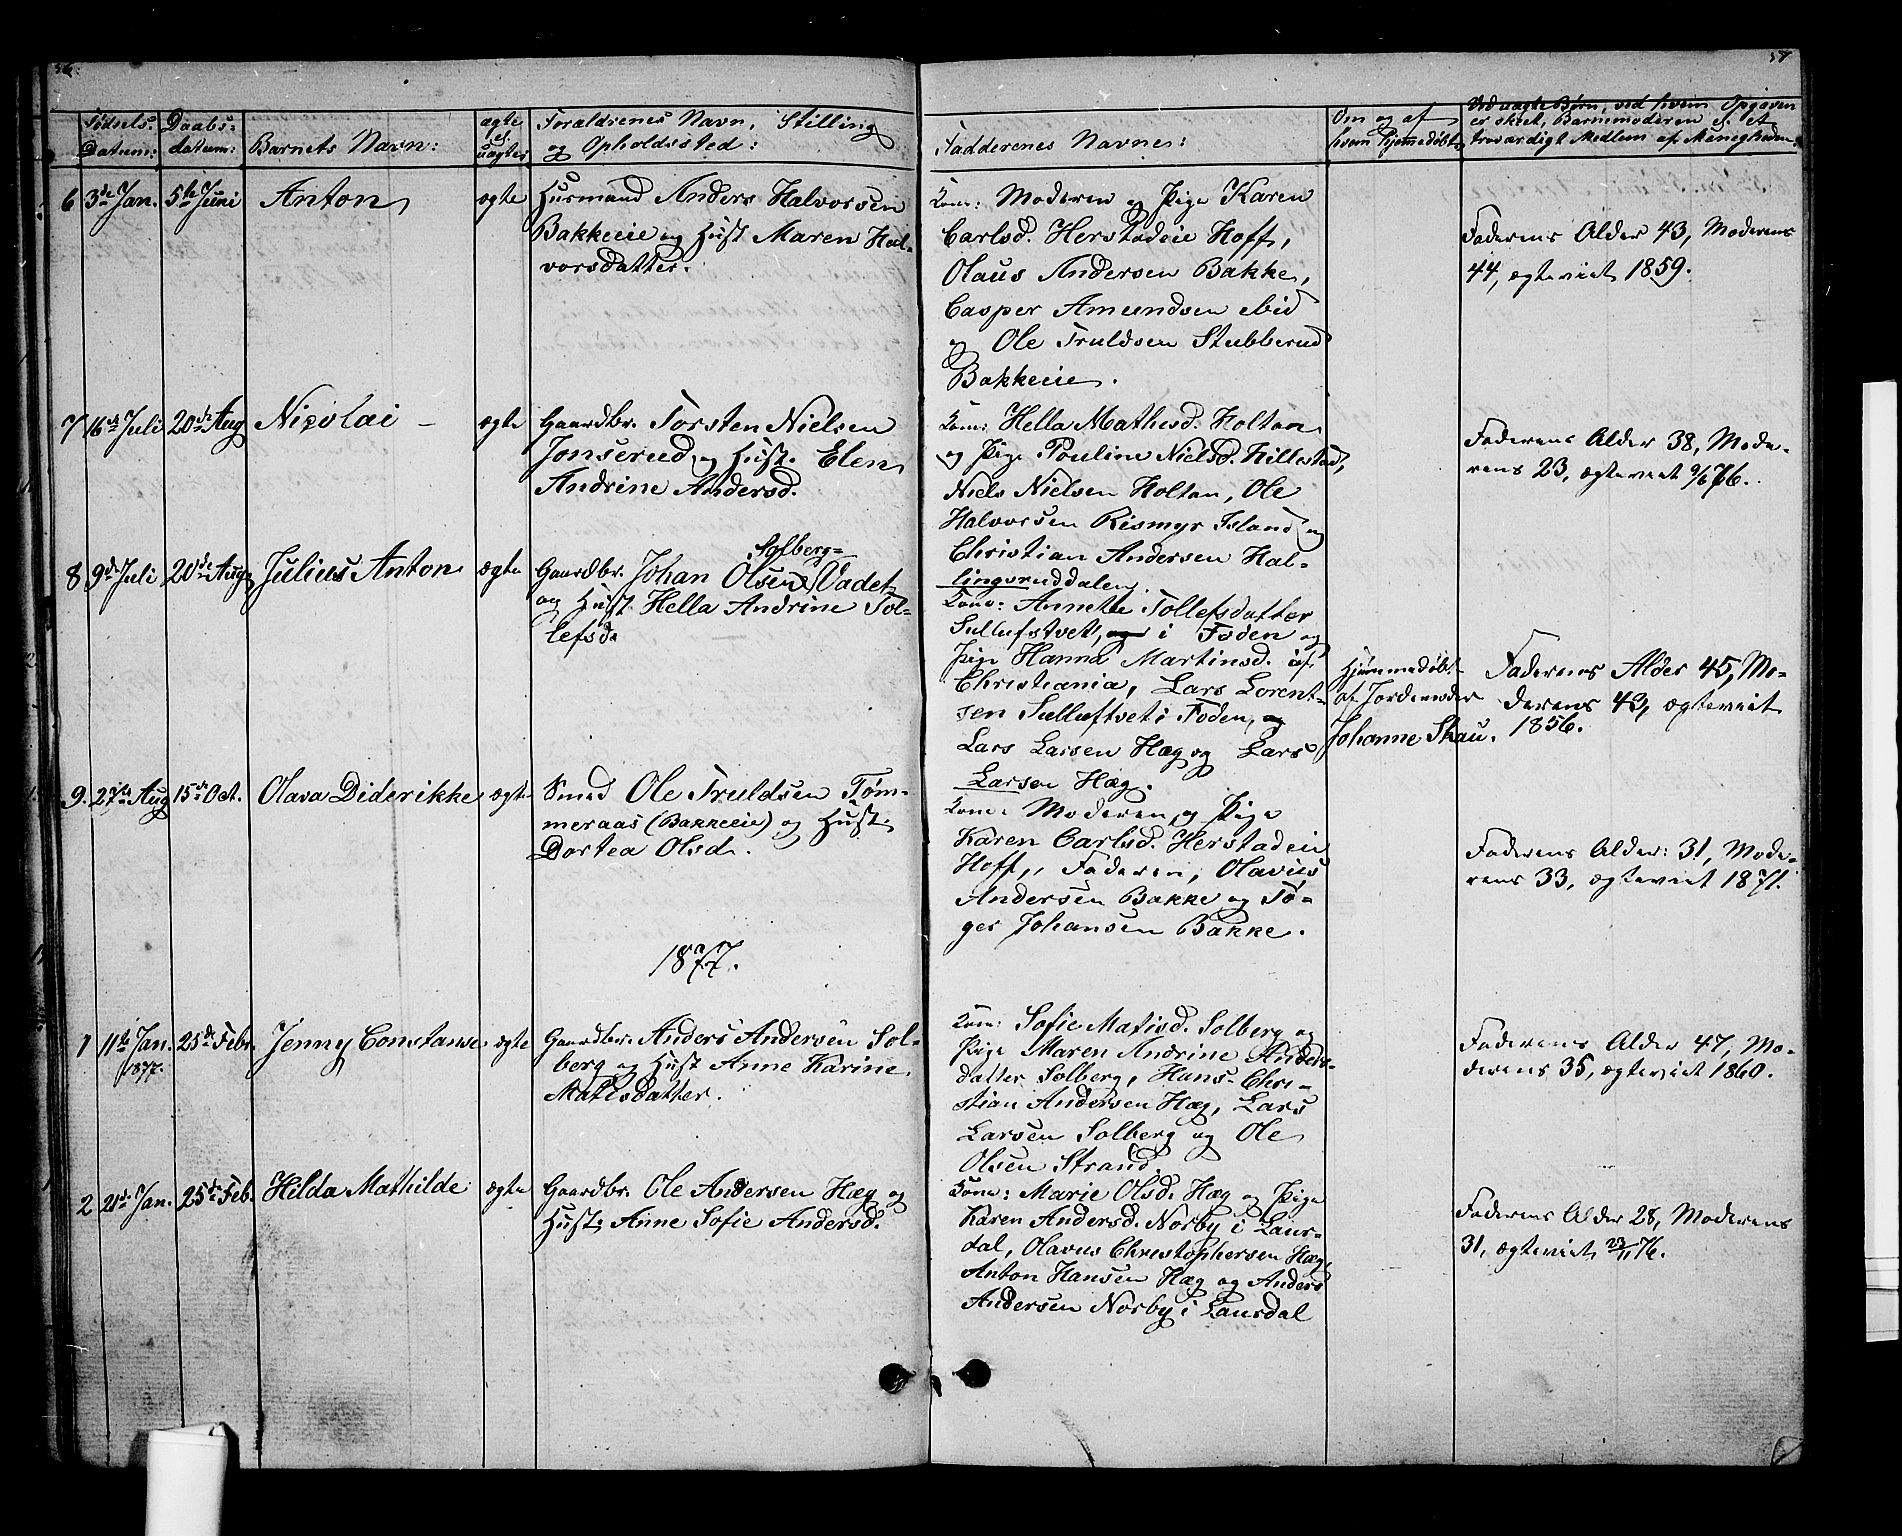 56.
57
Fødsels-
Datum:
Daabs-
datum:
Barnets Navn:
ægte
el.
uægte
Forældrenes Navn, Stilling
og Opholdssted:
Fadderenes Navne:
Om og af
hvem hjemmedøbt
Ved uægte Børn, ved hvem Opgaven
er skeet, Barnemoderen el. et
troværdigt Medlem af Menigheden.
6 3die Jan. 5te Juni Anton ægte
Husmand Anders Halvorsen
Bakkeeie og Hust Maren Hal-
vorsdatter.
Kone: Moderen og Pige Karen
Carlsd. Herstadeie Hoff,
Olaus Andersen Bakke,
Casper Amundsen ibid
og Ole Truldsen Stubberud
Bakkeeie.
Faderens Alder 43, Moderens
44, ægteviet 1859.
7 16de Juli 20de Aug Nicolai – ægte
Gaardbr. Torsten Nielsen
Jonserud og Hust. Elen
Andrine Andersd.
Kone: Hella Mathisd. Holtan
og Pige Pouline Nielsd. Hillestad,
Niels Nielsen Holtan, Ole
Halvorsen Rismyr Island og
Christian Andersen Hal-
lingsruddalen.
Faderens Alder 38, Mode-
rens 23, ægteviet 9/6 76.
8 9de Juli 20de Aug Julius Anton ægte
Solberg-
Gaardbr. Johan Olsen Vadet
og Hust. Hella Andrine Tol-
lefsd.
Kone: Annette Tollefsdatter
Sullufstvet, og i Foden og
Pige Hanna Martinsd. af
Christiania, Lars Lorent-
sen Sulluftvet i Foden, og
Lars Larsen Hæg og Lars
Larsen Hæg.
Hjemmedøbt
af Jordemoder
Johanne Skau.
Faderens Alder 45, Mo-
derens 43, ægteviet
1856.
9. 27de Aug 15de Oct. Olava Diderikke ægte
Smed Ole Truldsen Tøm-
meraas (Bakkeeie) og Hust.
Dortea Olsd.
Kone: Moderen og Pige
Karen Carlsd. Herstadeie
Hoff,, Faderen, Olavus
Andersen Bakke og Tø-
ger Johansen Bakke.
Faderens Alder: 31, Mode-
rens 33, ægteviet 1871.
1877.
1 11te Jan. 25de Febr. Jenny Constanse ægte
1877.
Gaardbr. Anders Andersen Sol-
berg og Hust Anne Karine
Matisdatter.
Kone: Sofie Matisd. Solberg og
Pige Maren Andrine Anders-
datter Solberg, Hans Chri-
stian Andersen Hæg, Lars
Larsen Solberg og Ole
Olsen Strand.
Faderens Alder 47, Mo-
derens 35, ægteviet 1860.
2 21de Jan. 25de Feb. Hilda Mathilde ægte
Gaardbr. Ole Andersen Hæg og
Hust: Anne Sofie Andersd.
Kone: Marie Olsd. Hæg og Pige
Karen Andersd. Norby i Laur-
dal, Olavus Christophersen Hæg,
Anton Hansen Hæg og Anders
Andersen Norby i Laurdal
Faderens Alder 28, Moderens
31, ægteviet 23/11 76.